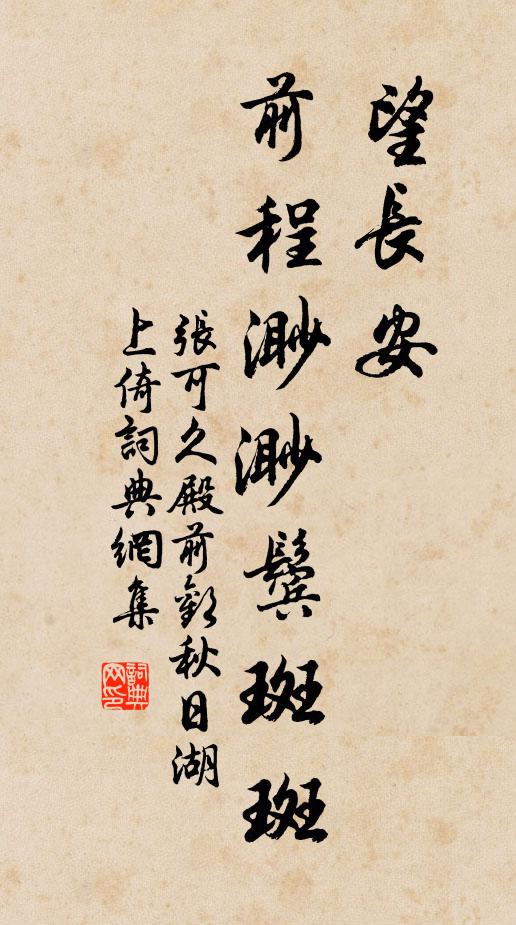 望長安
前程渺渺鬓斑斑
張可久殿前歡秋日湖
上倚詞典網集
詞典網印